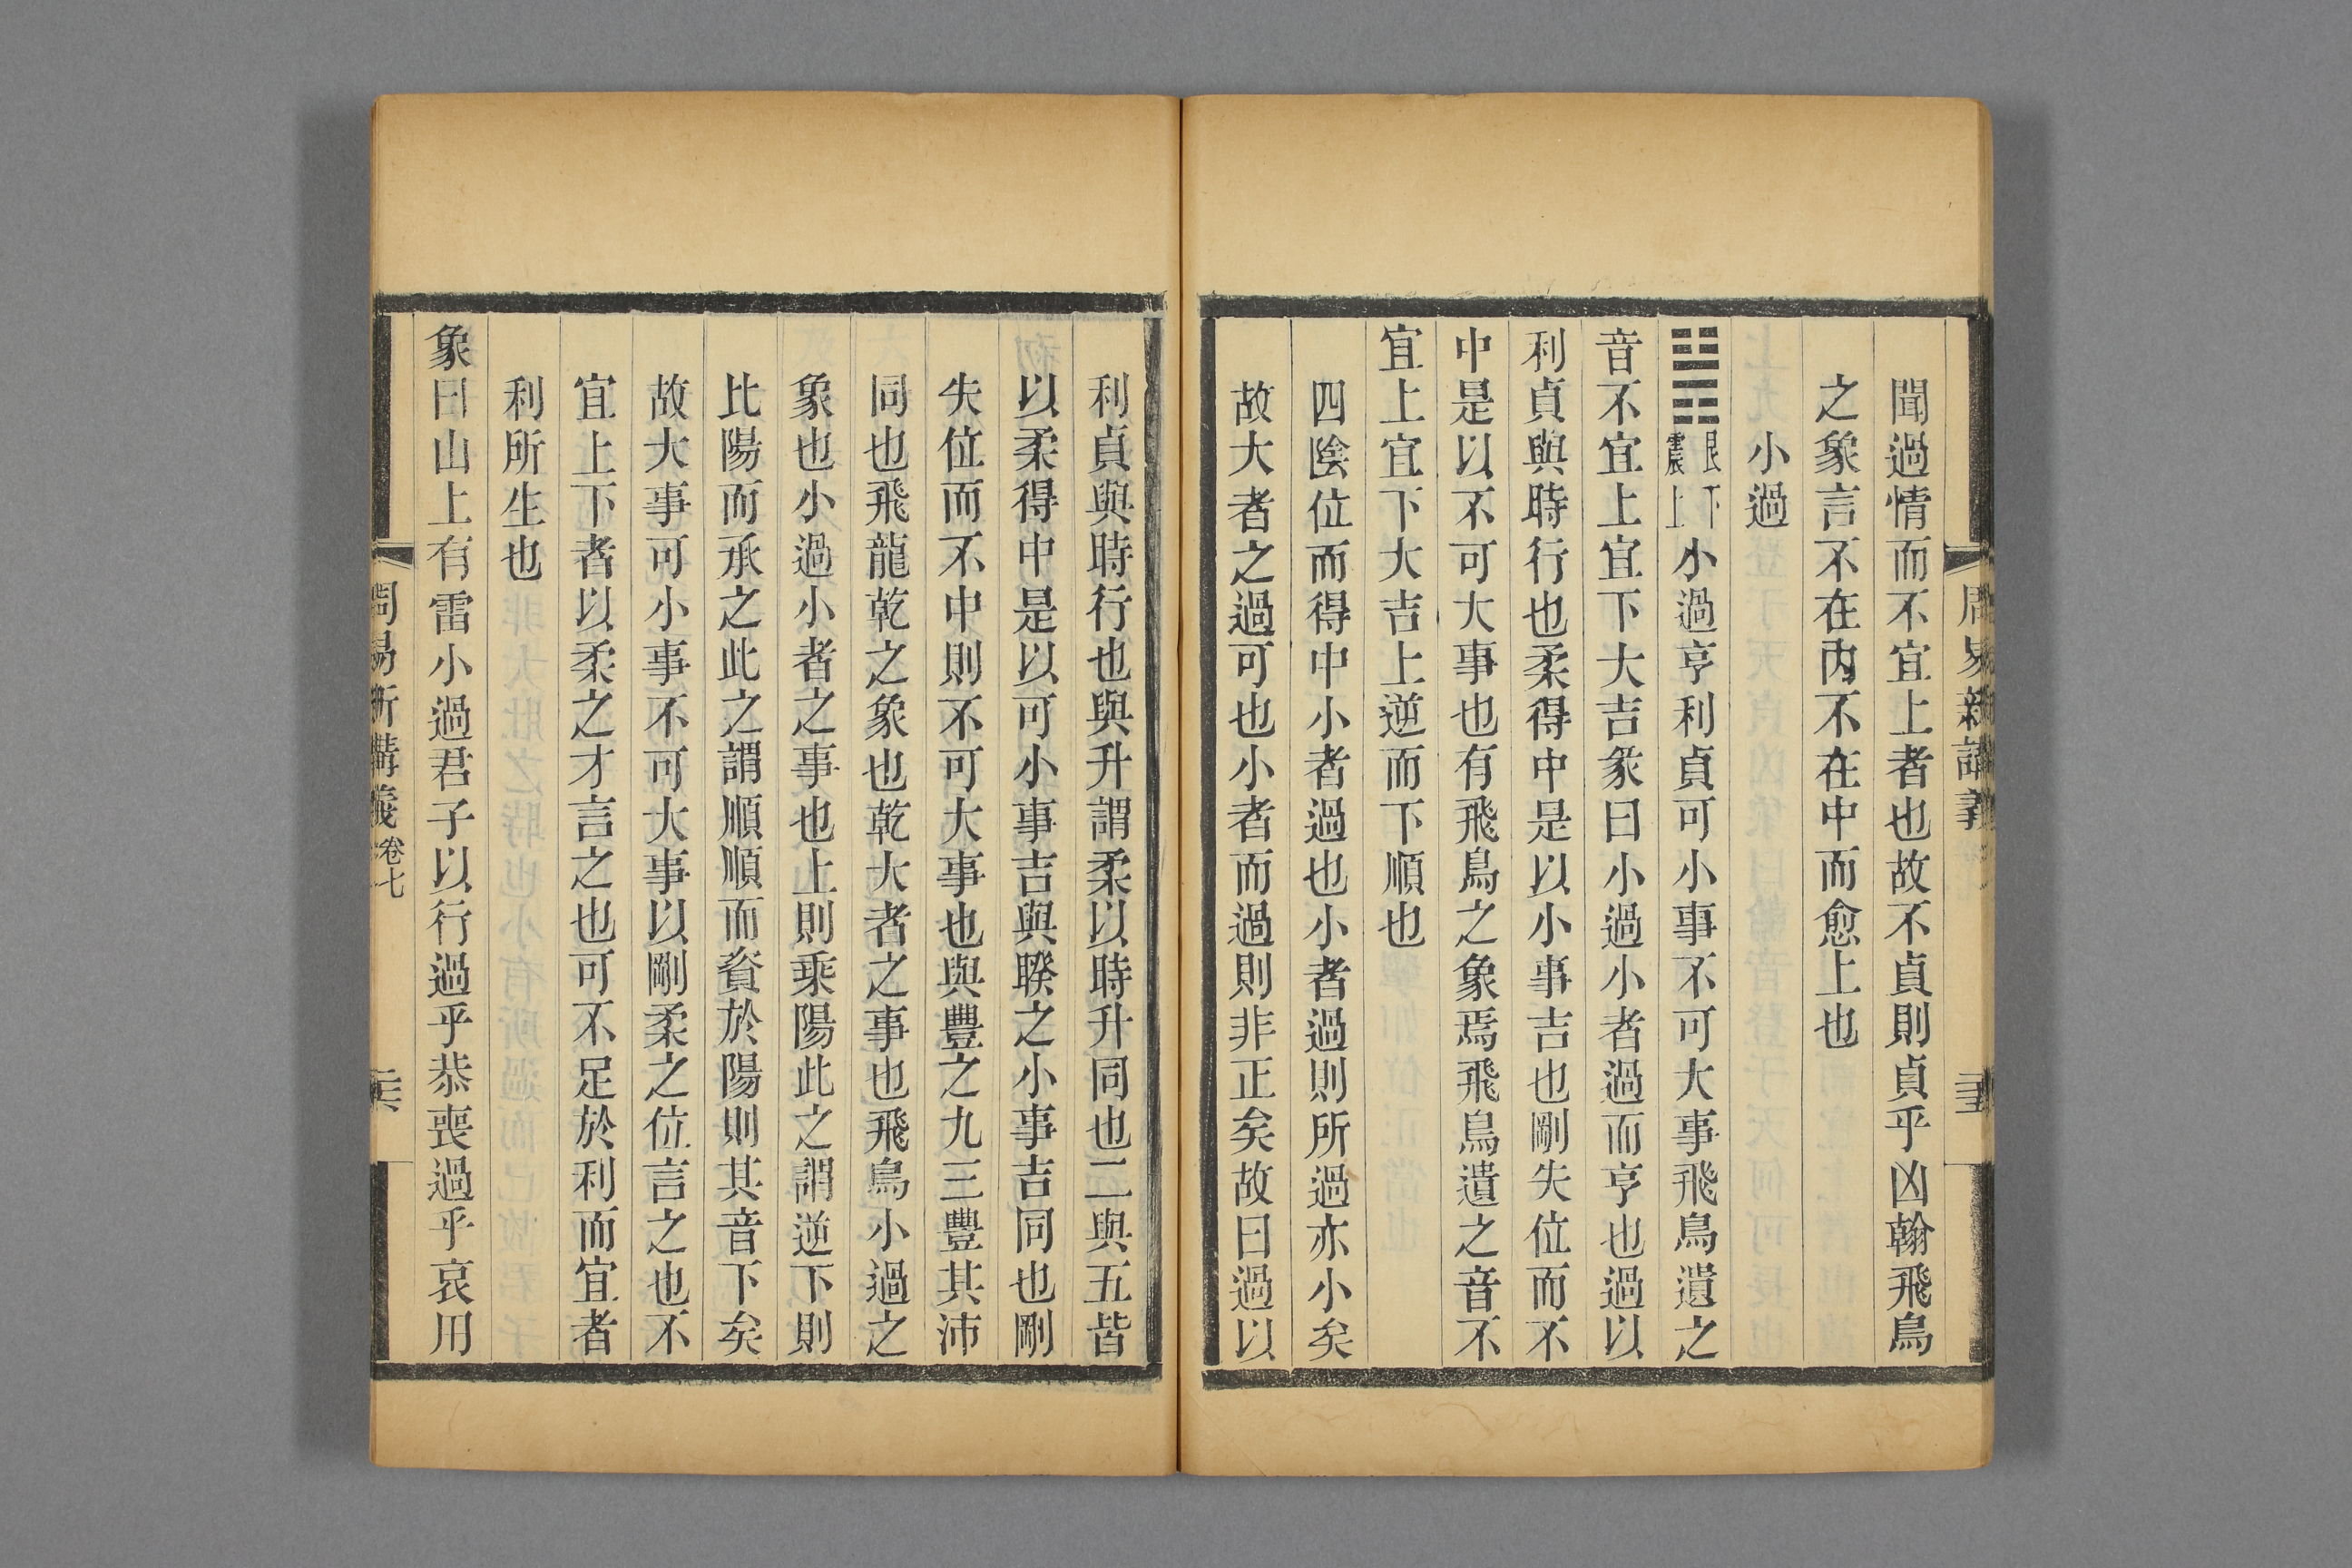 聞過情而不宜上者也故不貞則貞乎凶翰飛鳥
之象言不在内不在中而愈上也
小過
䷽艮下震上小過亨利貞可小事不可大事飛鳥遺之
音不宜上宜下大吉彖曰小過小者過而亨也過以
利貞與時行也柔得中是以小事吉也剛失位而不
中是以不可大事也有飛鳥之象焉飛鳥遺之音不
宜上宜下大吉上逆而下順也
四陰位而得中小者過也小者過則所過亦小矣
故大者之過可也小者而過則非正矣故曰過以
利貞與時行也與升謂柔以時升同也二與五皆
以柔得中是以可小事吉與睽之小事吉同也剛
失位而不中則不可大事也與豐之九三豐其沛
同也飛龍乾之象也乾大者之事也飛鳥小過之
象也小過小者之事也上則乘陽此之謂逆下則
比陽而承之此之謂順順而資於陽則其音下矣
故大事可小事不可大事以剛柔之位言之也不
宜上下者以柔之才言之也可不足於利而宜者
利所生也
象曰山上有雷小過君子以行過乎恭喪過乎哀用
周易新講義 卷七